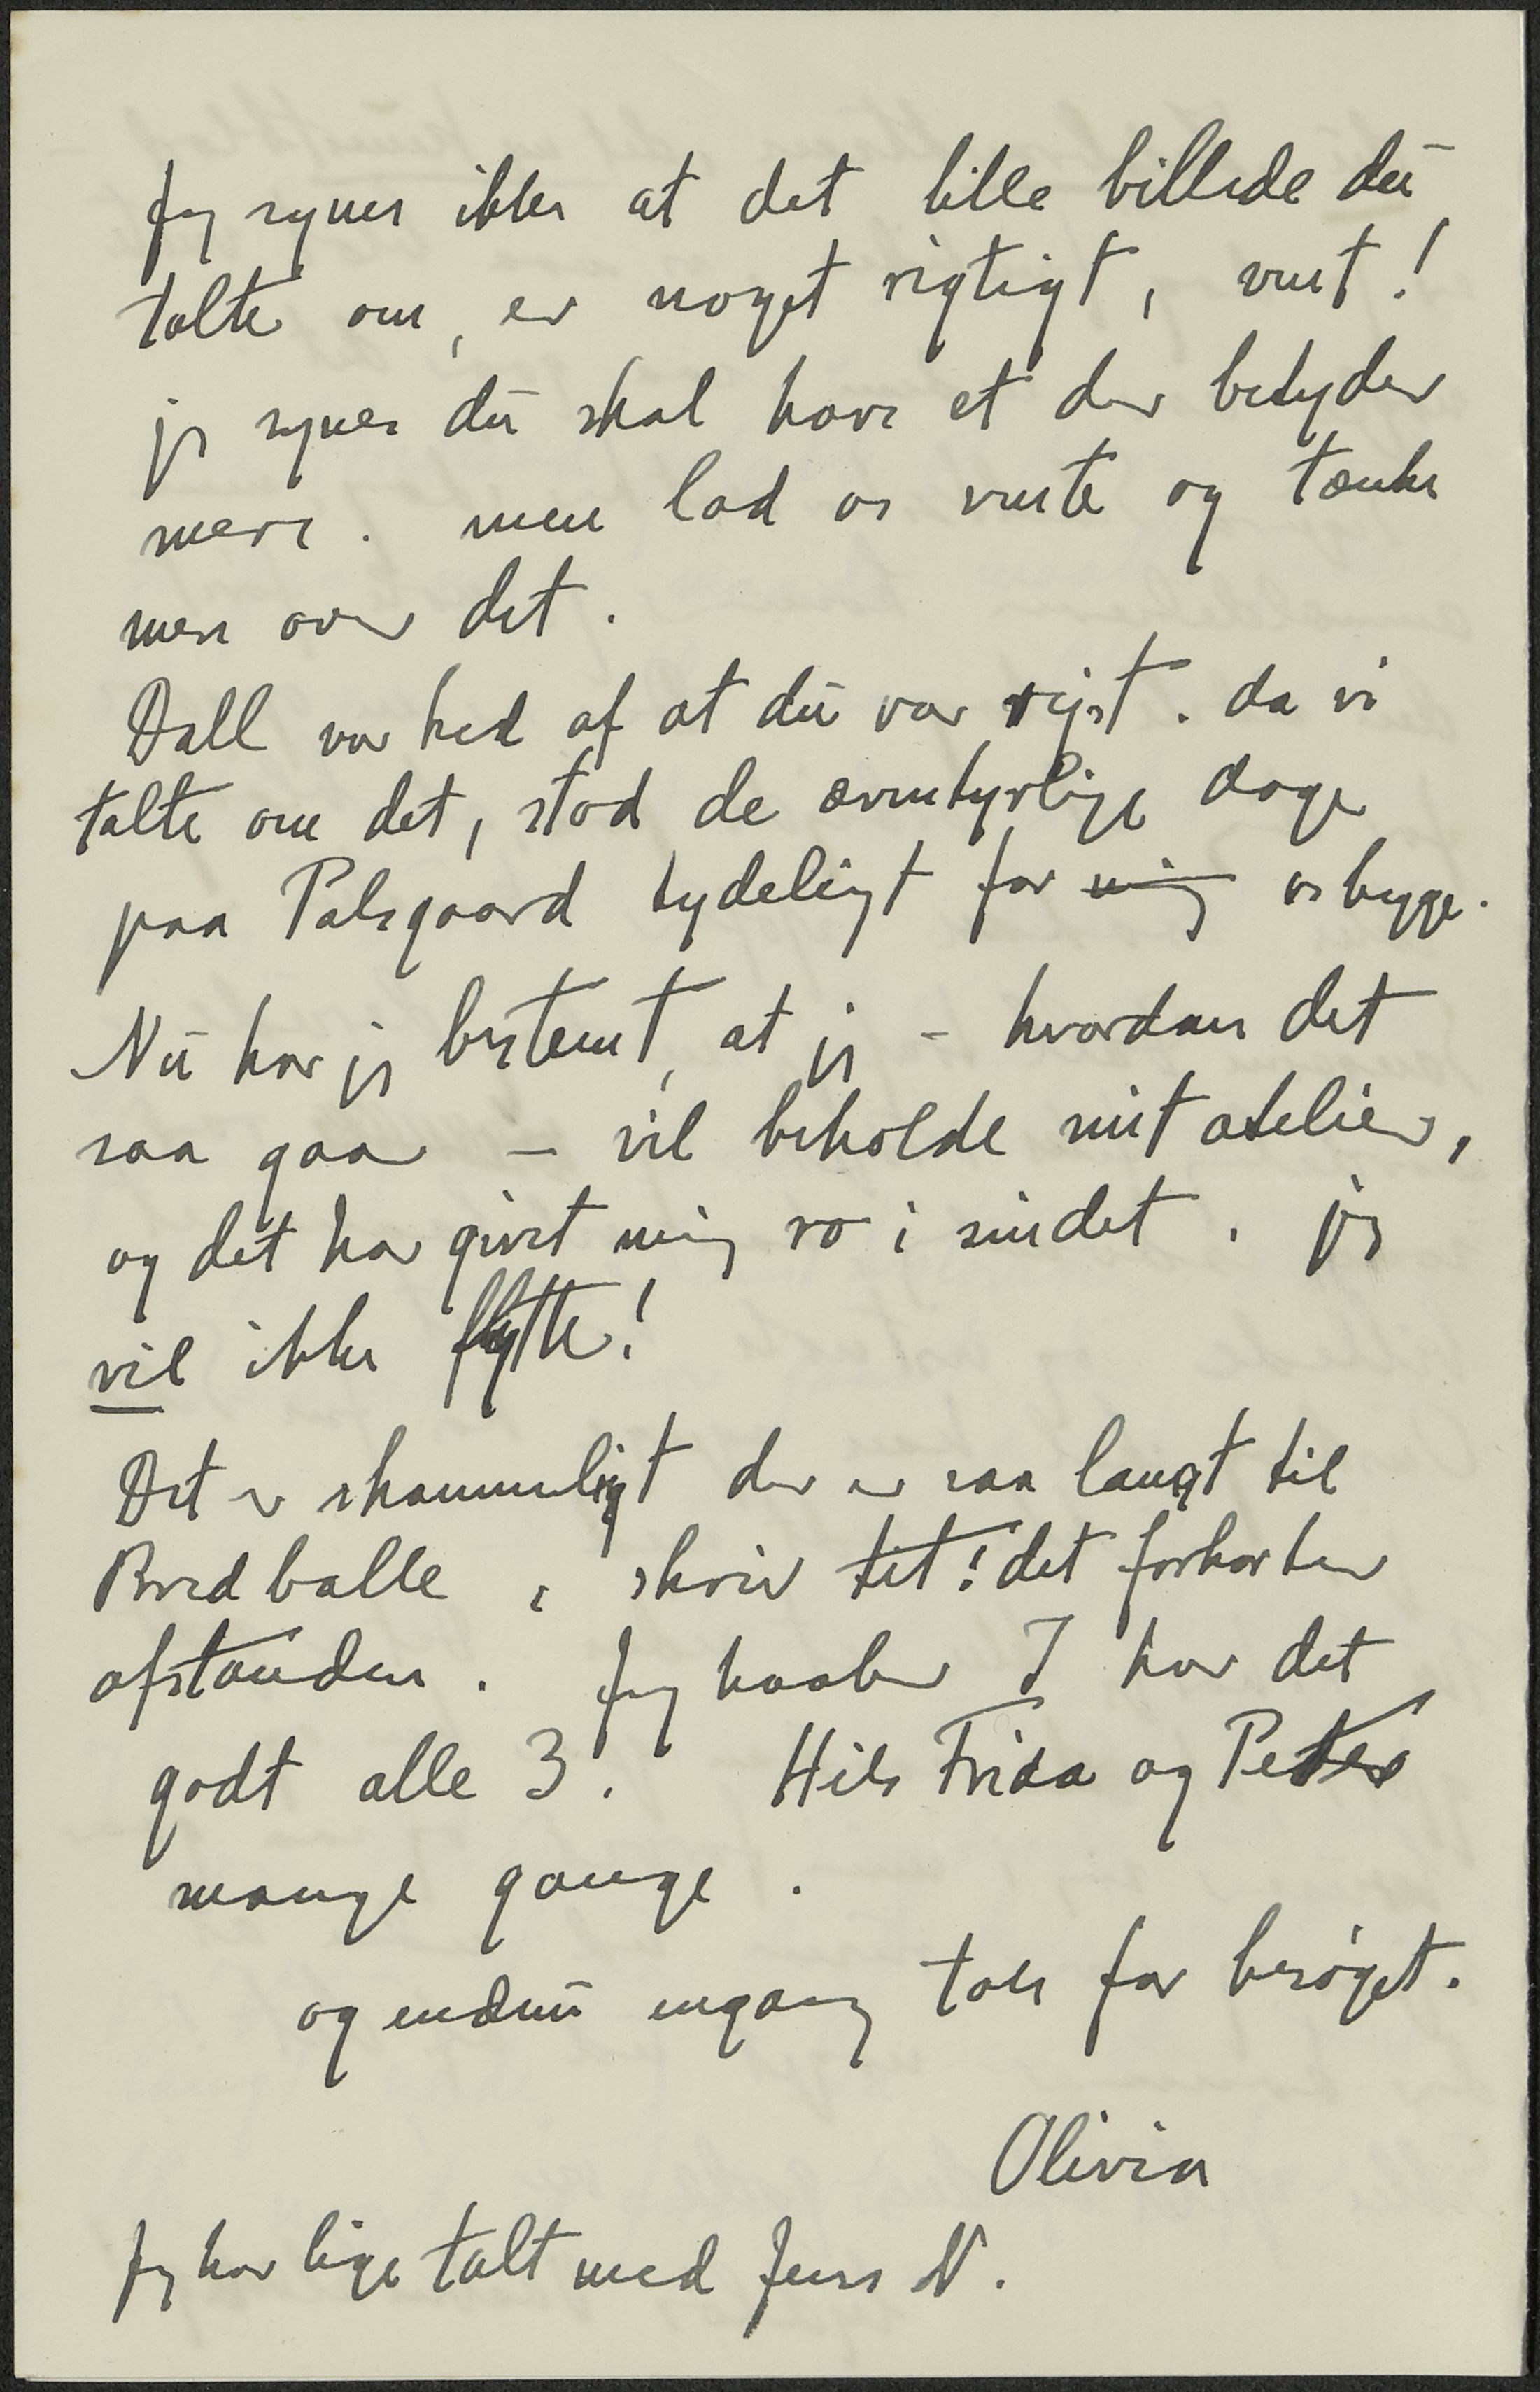 Jeg synes ikke at det lille billede du
talte om, er noget rigtigt, vent!
jeg synes du skal have et der betyder
mere. men lad os vente og tænke
mere over det.
Dall var ked af at du var rejst. da vi
talte om det, stod de æventyrlige dage
paa Palsgaard tydeligt for mig os begge.
Nu har jeg bestemt, at jeg – hvordan det
saa gaar – vil beholde mit atelier,
og det har givet mig ro i sindet. jeg
vil ikke flytte!
Det er skammeligt der er saa langt til
Bredballe, skriv tit! det forkorter
afstanden. Jeg haaber I har det
godt alle 3. Hils Frida og Peter
mange gange.
og endnu engang tak for besøget.
Olivia
Jeg har lige talt med Jens N.